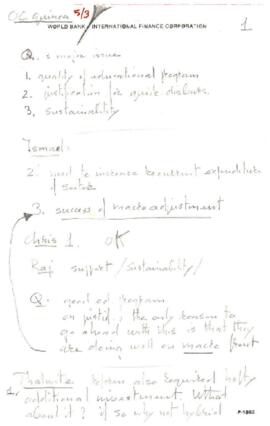 OC Guinea 5/3
WORLD BANK / INTERNATIONAL FINANCE CORPORATION
1
Q. 3 major issues
1. quality of educational program
2. justification for quick disburs.
3. sustainability
Ismail:
2. need to increase recurrent expenditure
of sector
3. success of macro adjustment
Chris 1. OK
Raj support / sustainability /
Q. good ed program.
on justif.; the only reason to
go ahead with this is that they
are doing well on macro front
Thalwitz reform also required hefty
1. additional investment. What
about it? if so why not hybrid
P-1862